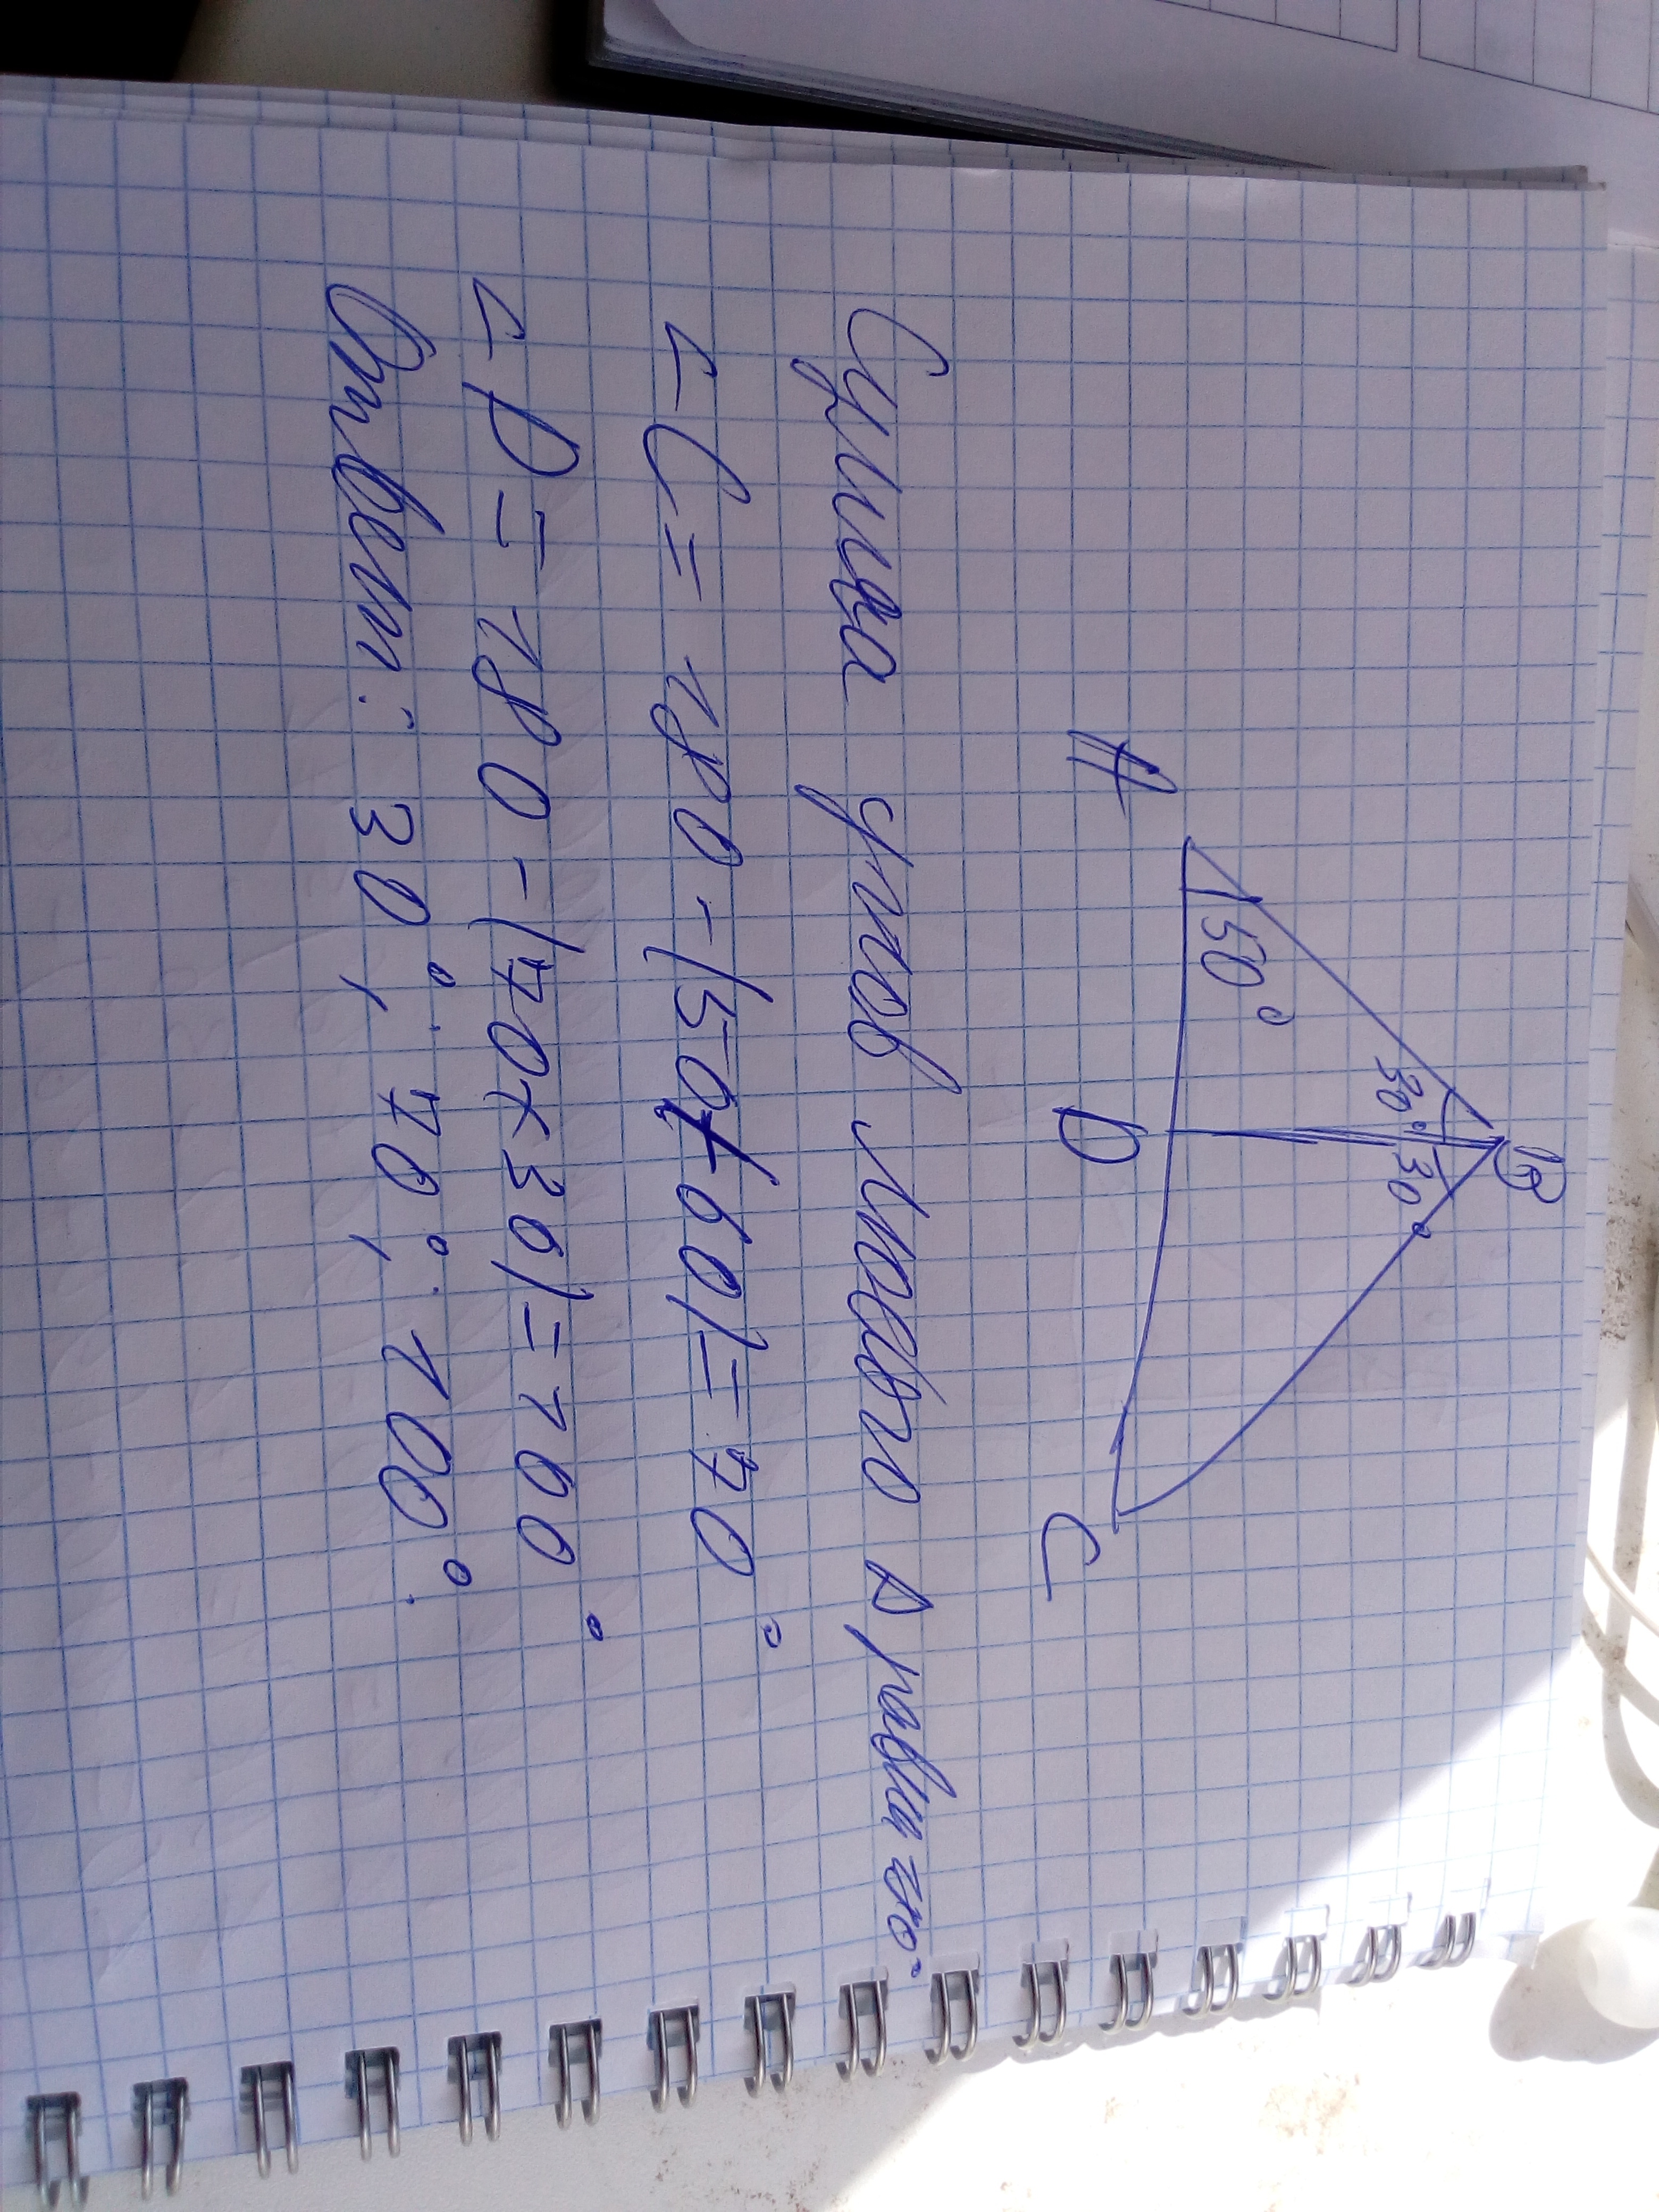 B
30° 30°
50°
A D C
Сумма углов любого Δ равна 180°
∠C = 180 - (50+60) = 70°
∠D = 180 - (70+30) = 100°
Ответ: 30°, 70°, 100°.